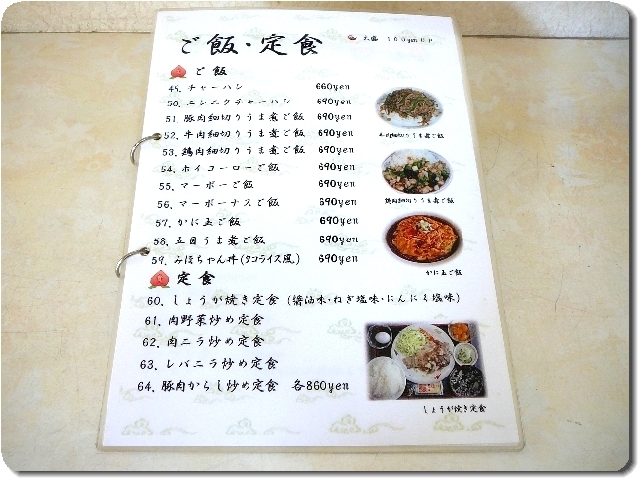 ご飯・定食
大盛 100yenUP
ご飯
49. チャーハン 660yen
50. ニンニクチャーハン 690yen
51. 豚肉細切りうま煮ご飯 690yen
52. 牛肉細切りうま煮ご飯 690yen
53. 鶏肉細切りうま煮ご飯 690yen
54. ホイコーローご飯 690yen
55. マーボーご飯 690yen
56. マーボーナスご飯 690yen
57. かに玉ご飯 690yen
58. 五目うま煮ご飯 690yen
59. みほちゃん丼(タコライス風) 690yen
牛肉細切りうま煮ご飯
鶏肉細切りうま煮ご飯
かに玉ご飯
定食
60. しょうが焼き定食 (醤油味・ねぎ塩味・にんにく塩味)
61. 肉野菜炒め定食
62. 肉ニラ炒め定食
63. レバニラ炒め定食
64. 豚肉からし炒め定食 各860yen
しょうが焼き定食